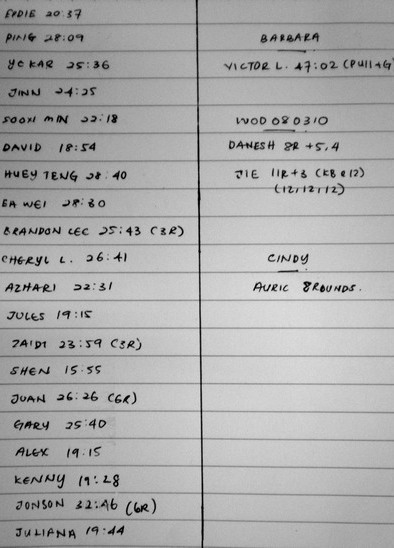 EDDIE 20:37
PING 28:09
YC KAR 25:36
JINN 24:25
SOON MIN 22:18
DAVID 18:54
HUEY TENG 28:40
EA WEI 28:30
BRANDON LEC 25:43 (3R)
CHERYL L. 26:41
AZHARI 22:31
JULES 19:15
ZAIDI 23:59 (3R)
SHEN 15:55
JUAN 26:26 (6R)
GARY 25:40
ALEX 19:15
KENNY 19:28
JONSON 32:46 (6R)
JULIANA 19:44
BARBARA
VICTOR L. 47:02 (PULL+G)
WOD 080310
DANESH 8R +5,4
JIE 11R+3 (KB@12)
(12,12,12)
CINDY
AURIC 8ROUNDS.